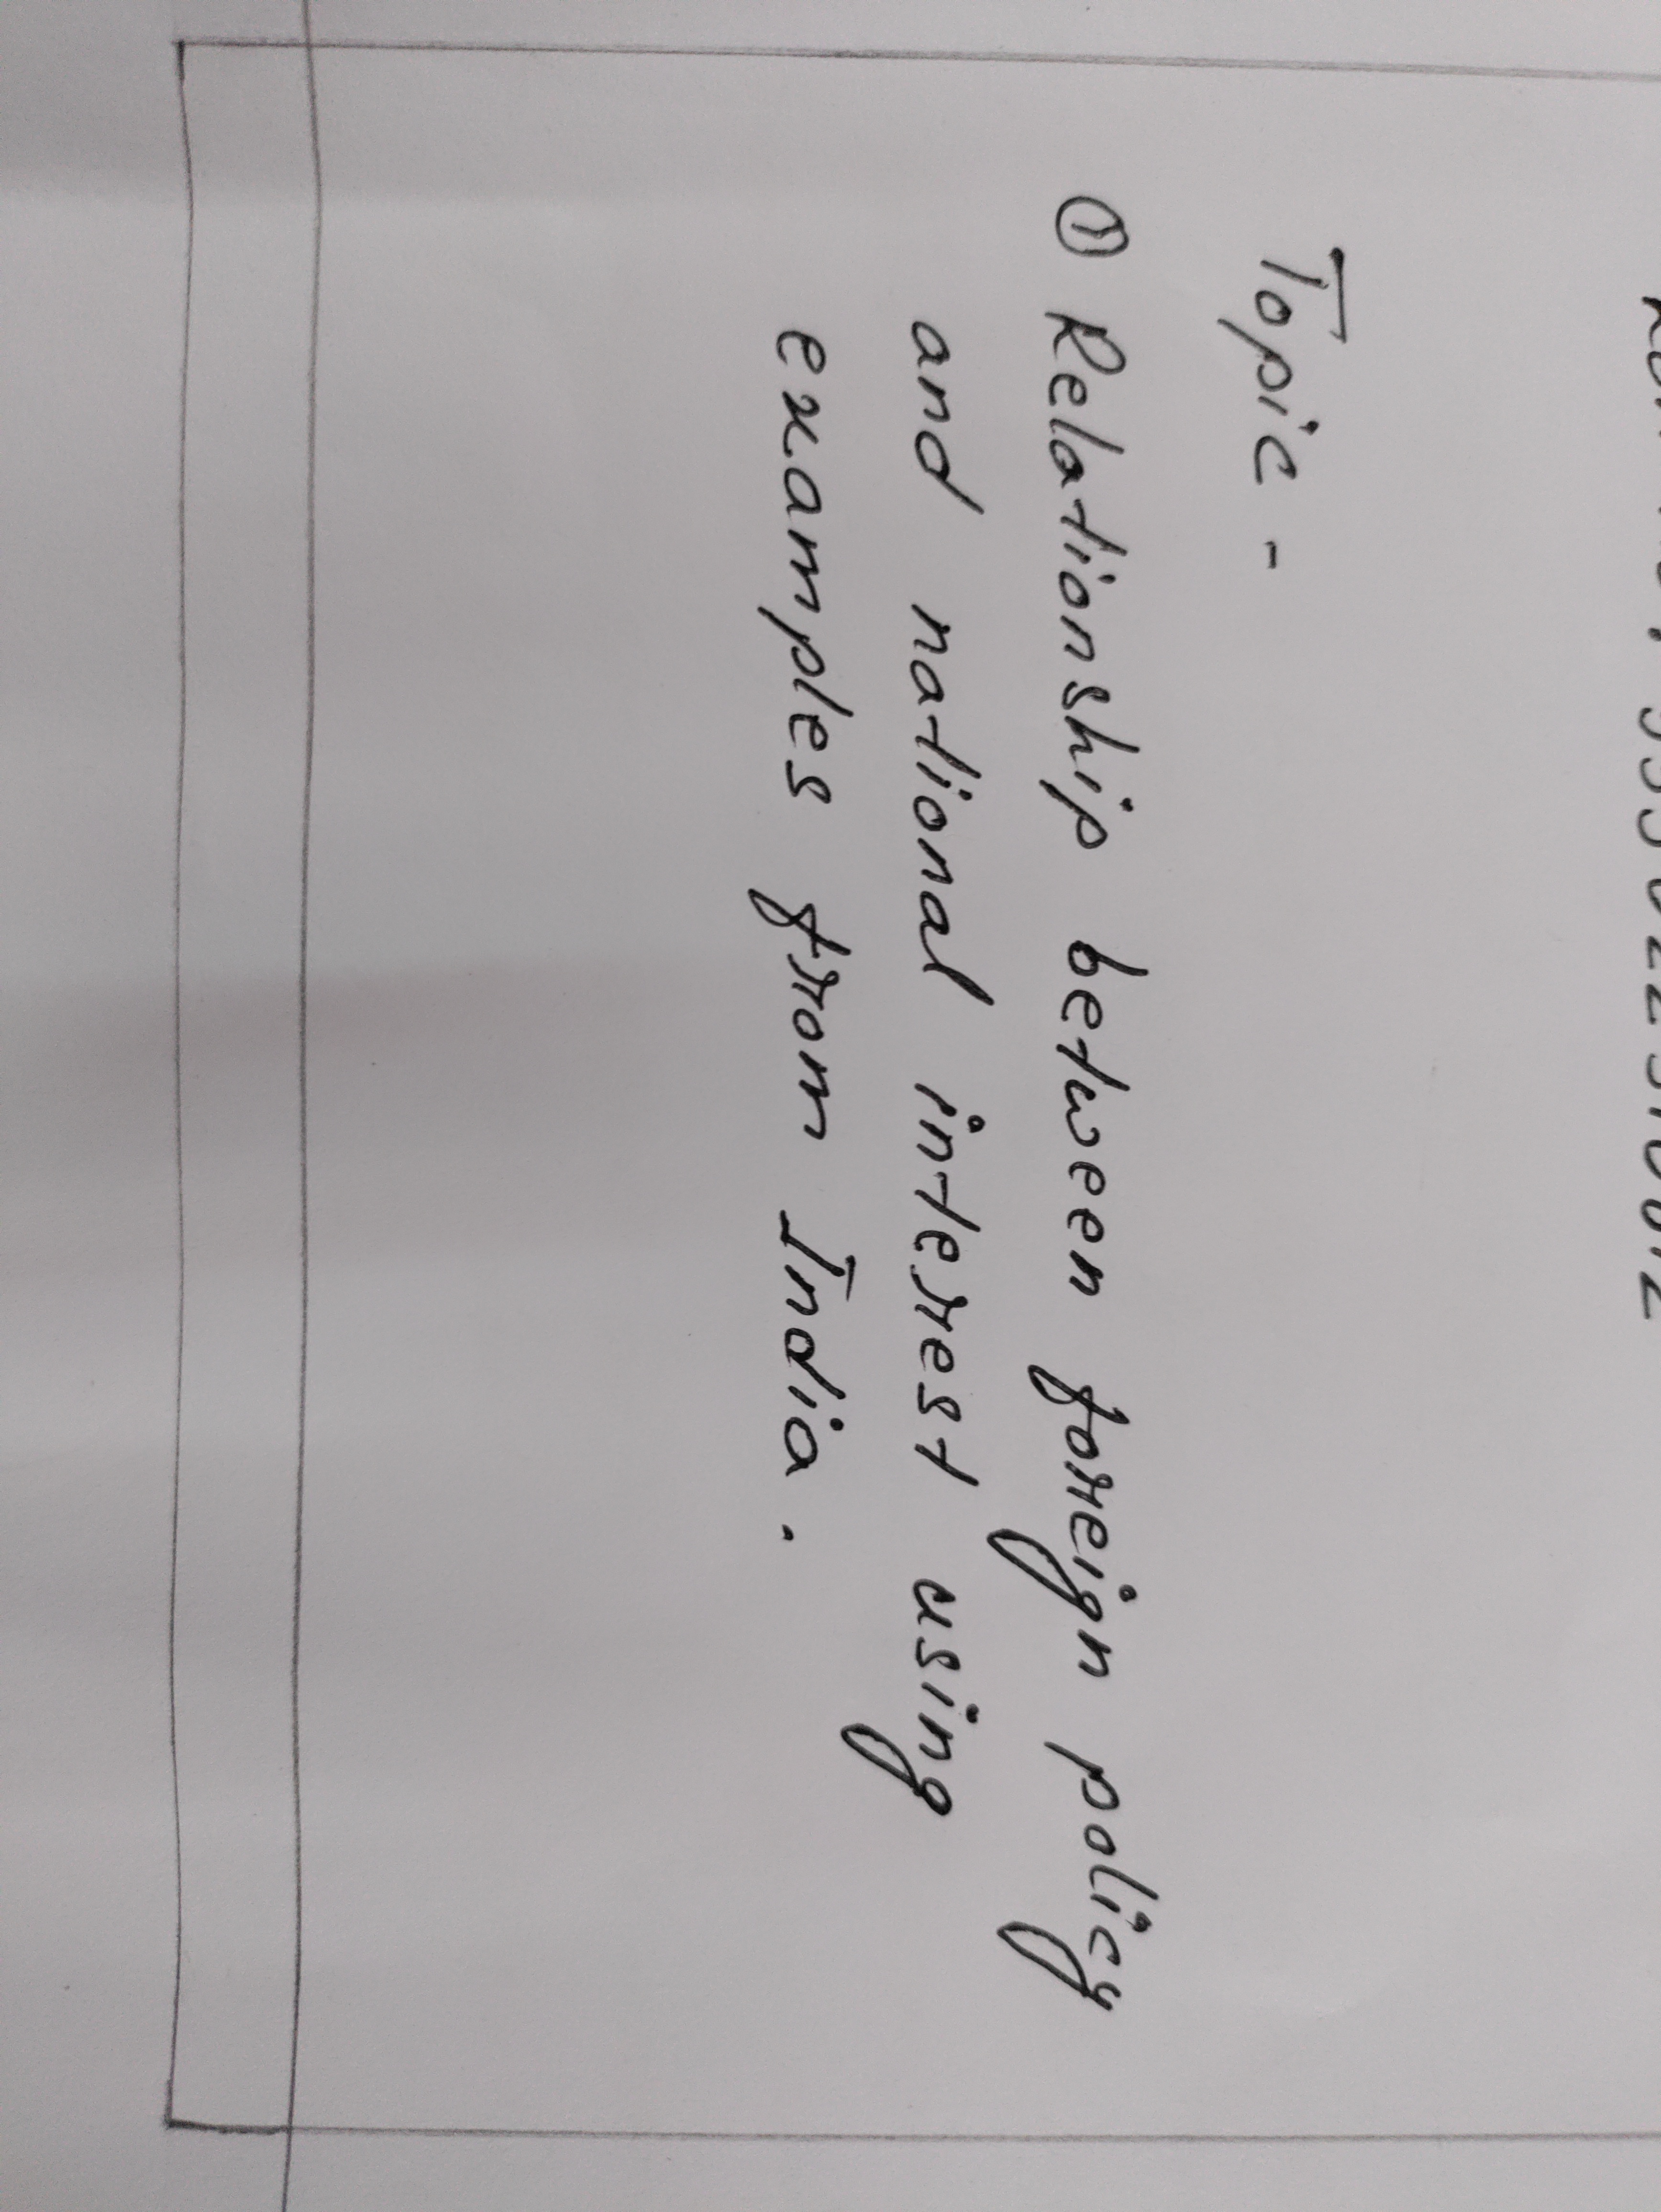 Topic -
① Relationship between foreign policy
and national interest using
examples from India.